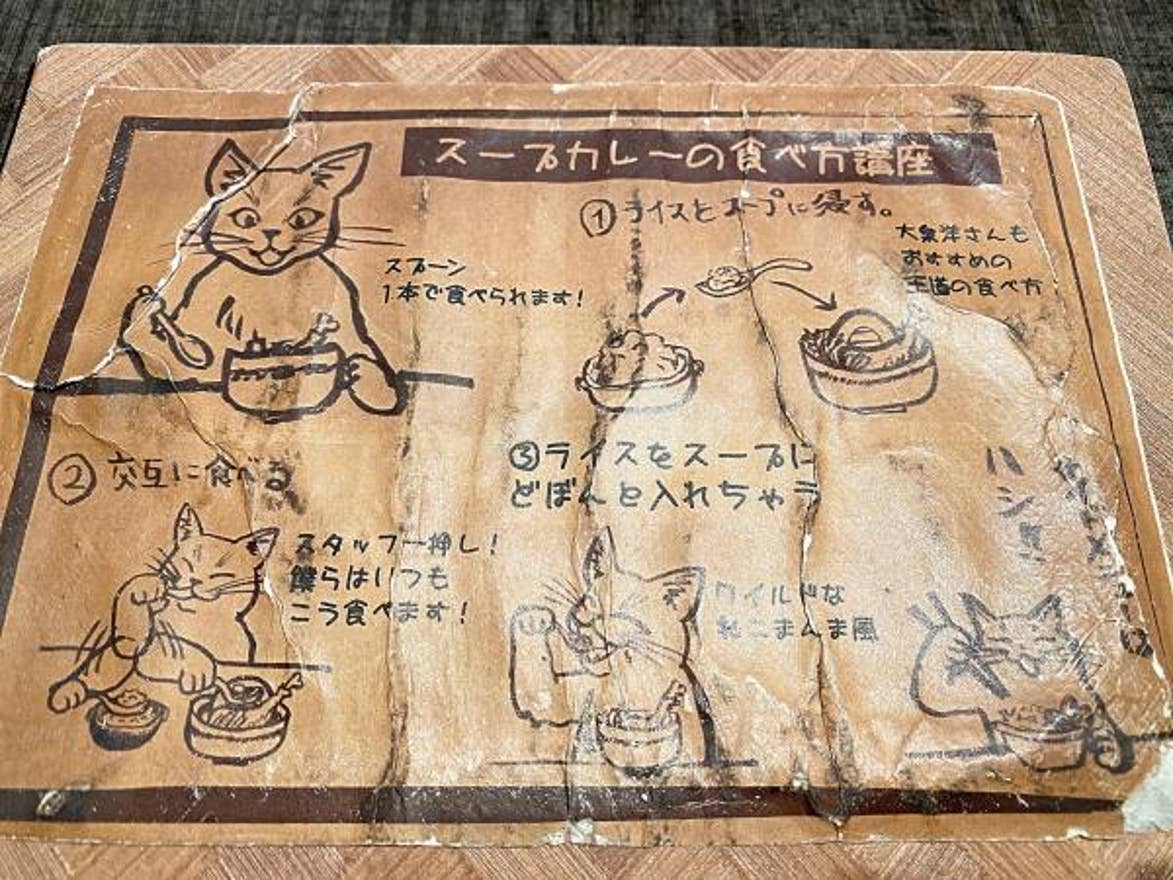 スープカレーの食べ方講座
スプーン
1本で食べられます！
①ライスとスープに浸す。
大泉洋さんも
おすすめの
王道の食べ方
②交互に食べる
スタッフ一押し！
僕らはいつも
こう食べます！
③ライスをスープに
どぼんと入れちゃう
ワイルドな
ねこまんま風